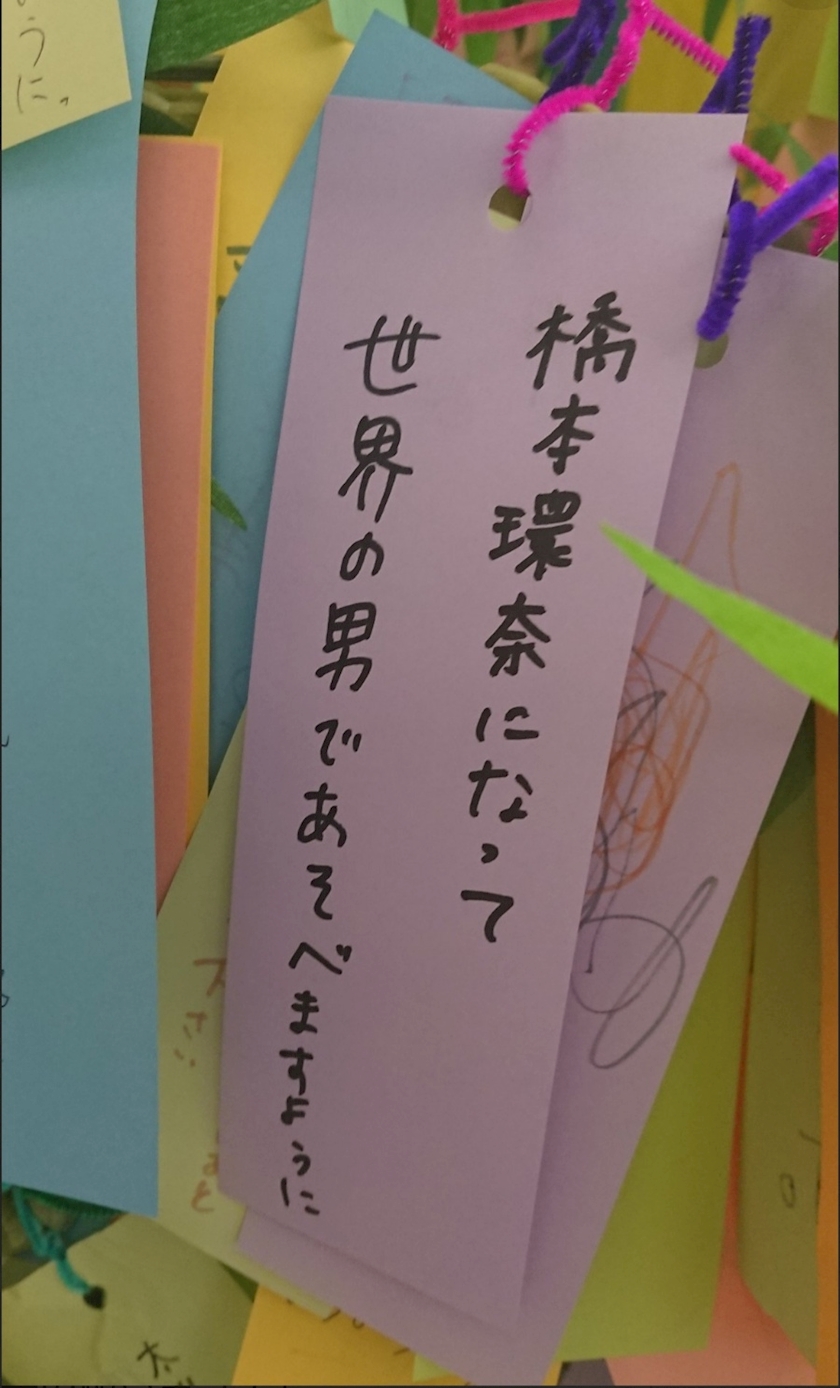 橋本環奈になって
世界の男であそべますように
うに。
下さい